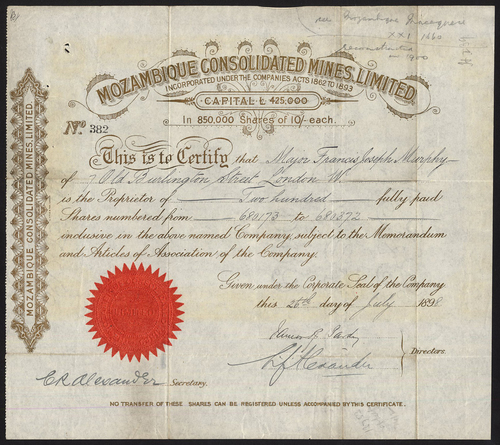 see Mozambique
XXI 1660
reconstruction
1900
MOZAMBIQUE CONSOLIDATED MINES, LIMITED.
INCORPORATED UNDER THE COMPANIES ACTS 1862 TO 1893
CAPITAL £ 425,000
In 850,000 Shares of 10/- each.
No. 382
This is to Certify that Major Francis Joseph Murphy
of 7 Old Burlington Street, London W.
is the Proprietor of Two hundred fully paid
Shares numbered from 680173 to 680372
inclusive in the above named Company, subject to the Memorandum
and Articles of Association of the Company.
Given under the Corporate Seal of the Company
this 26th day of July 1898
Directors.
C R Alexander Secretary.
NO TRANSFER OF THESE SHARES CAN BE REGISTERED UNLESS ACCOMPANIED BY THIS CERTIFICATE.
MOZAMBIQUE CONSOLIDATED MINES, LIMITED.